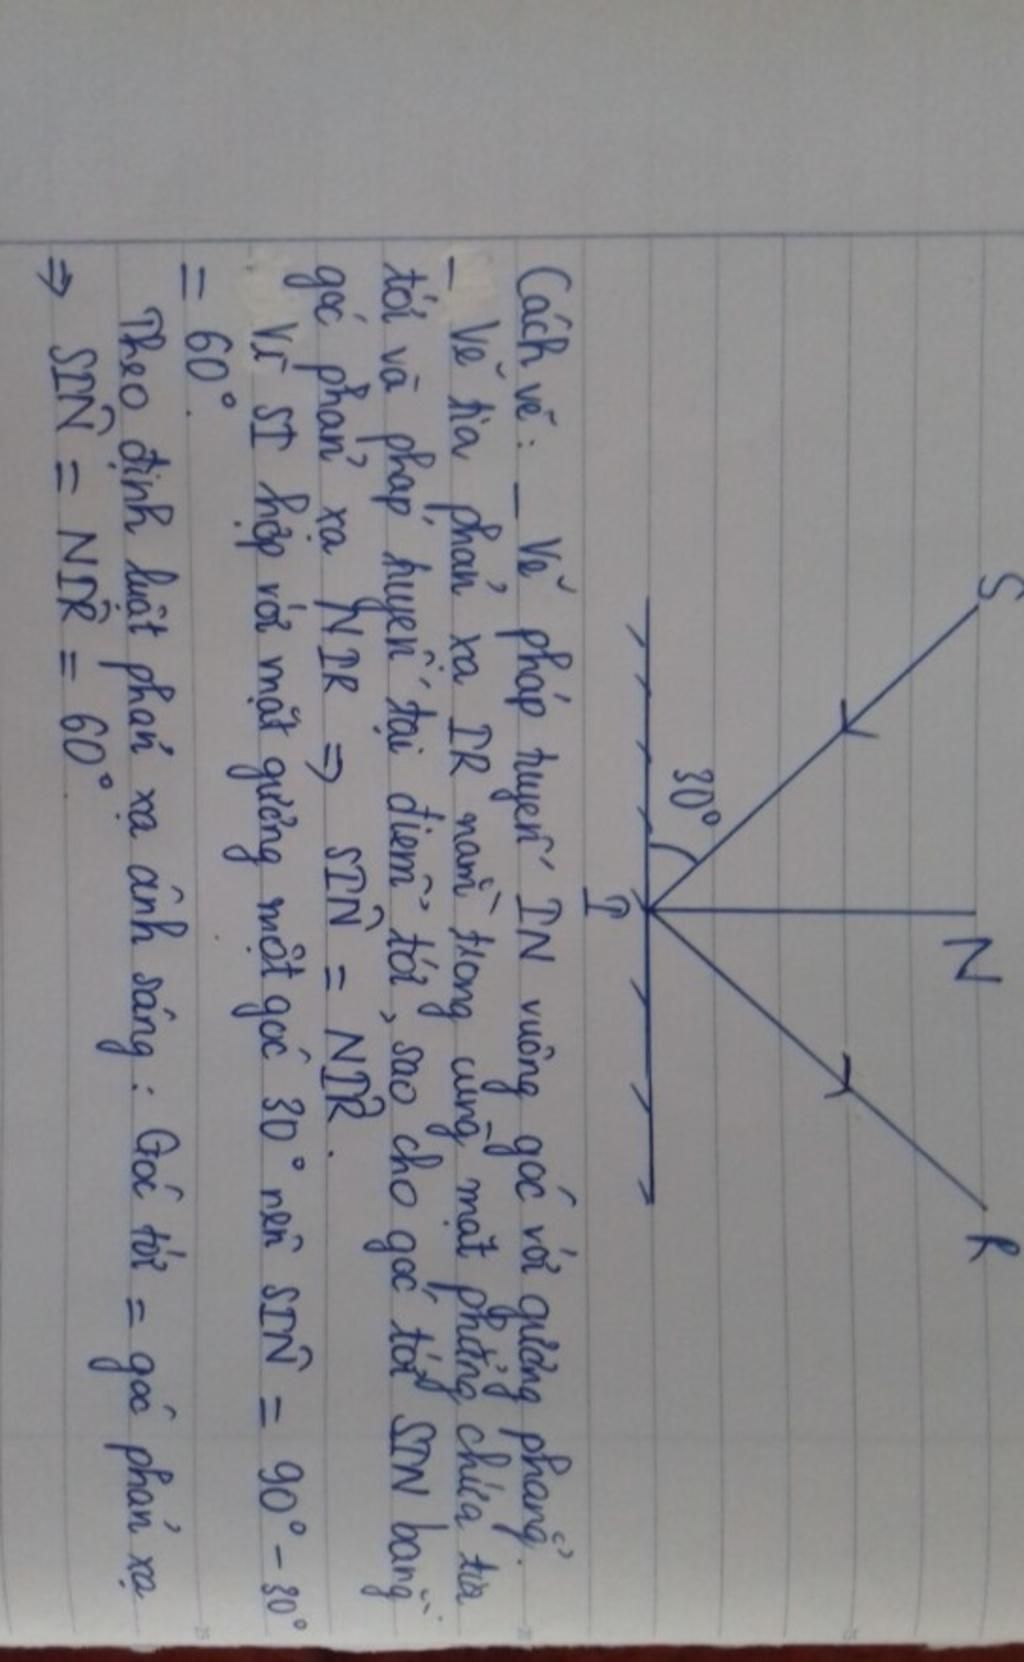 S
N
R
30°
I
Cách vẽ: - Vẽ pháp tuyến IN vuông góc với gương phẳng.
- Vẽ tia phản xạ IR nằm trong cùng mặt phẳng chứa tia
tới và pháp tuyến tại điểm tới, sao cho góc tới SIN bằng
góc phản xạ NIR ⇒ SIN̂ = NIR̂.
Vì SI hợp với mặt gương một góc 30° nên SIN̂ = 90° - 30°
= 60°.
Theo định luật phản xạ ánh sáng: Góc tới = góc phản xạ
⇒ SIN̂ = NIR̂ = 60°.